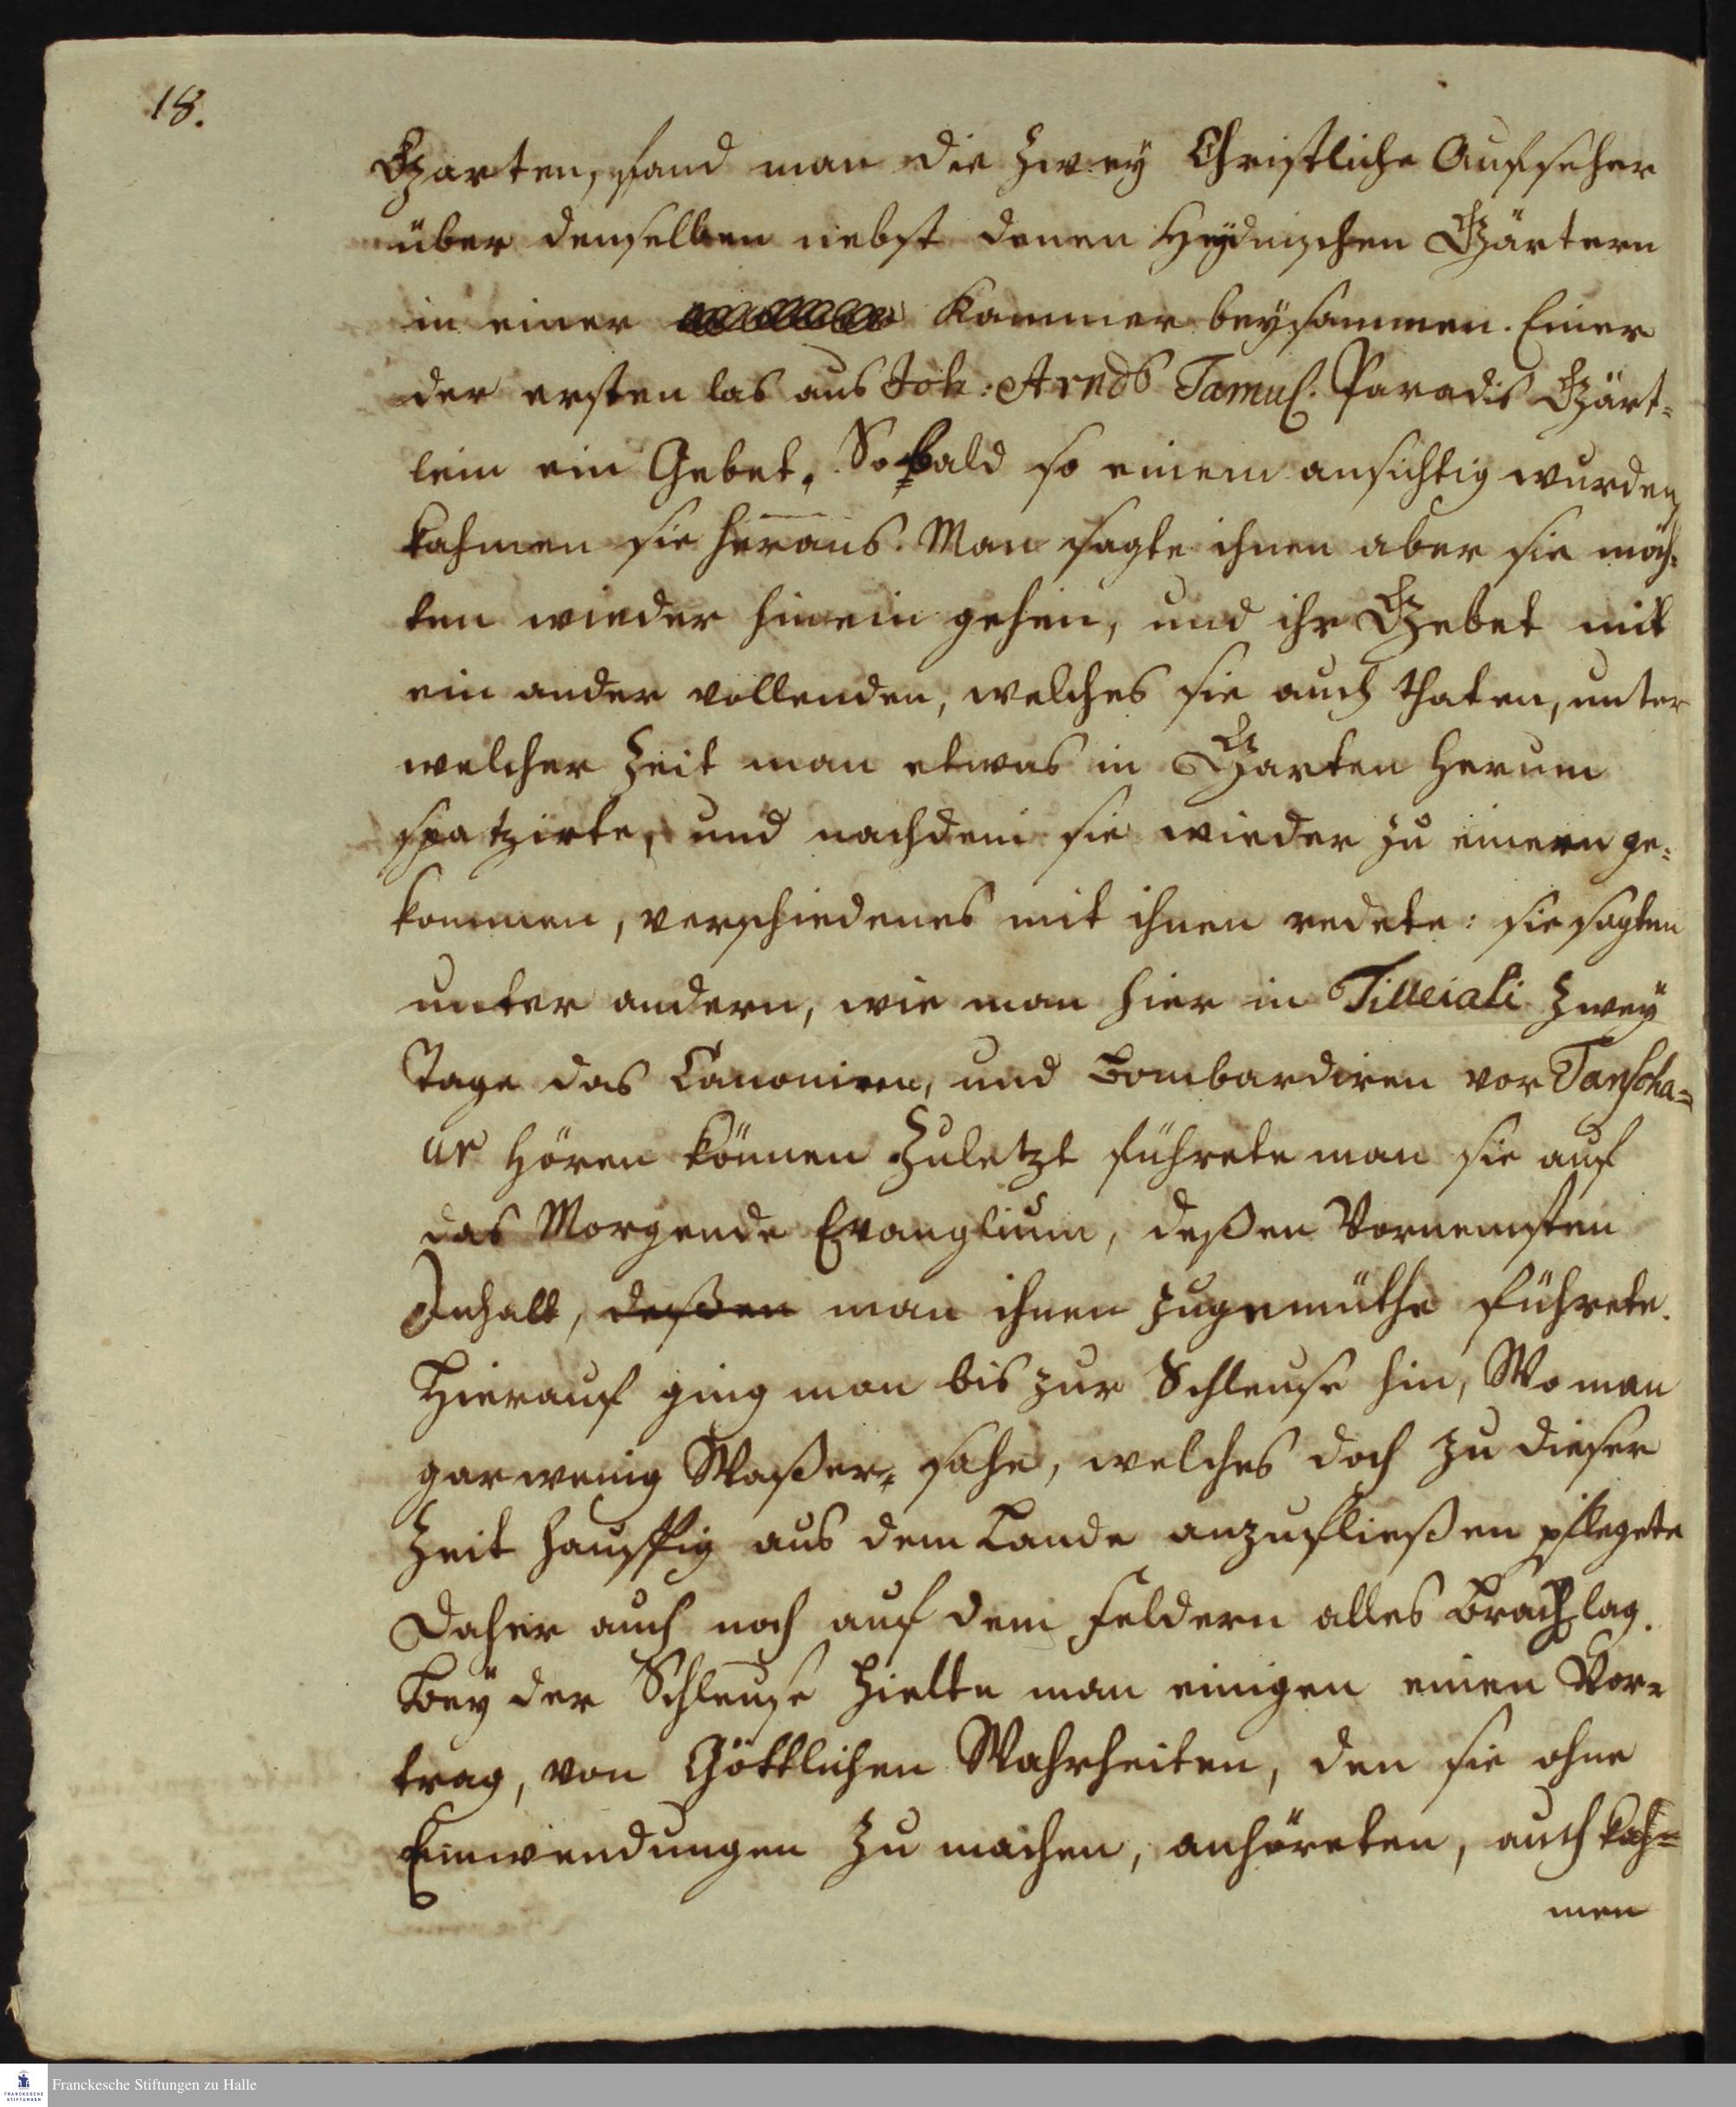 18.
Garten, fand man die zwey Christliche Aufseher
über denselben nebst denen Heydnischen Gärtern
in einer Kammer beysammen. Einer
der ersten las aus Joh: Arnds Tamul. Paradis Gärt=
lein ein Gebet. So bald so einem ansichtig wurden,
kahmen sie heraus. Man sagte ihnen aber sie möch=
ten wieder hinein gehen, und ihr Gebet mit
ein ander vollenden, welches sie auch thaten, unter
welcher Zeit man etwas in Garten herum
spatzirte, und nachdem sie wieder zu einem ge=
kommen, verschiedenes mit ihnen redete: sie sagten
unter andern, wie man hier in Tilleiali zwey
Tage das Canoniren, und Bombardiren vor Tanscha=
ur hören können. Zuletzt führete man sie auf
das Morgende Evanglium, deßen Vornemsten
Inhalt, deßen man ihnen zugemüthe führete.
Hierauf ging man bis zur Schleuse hin, Wo man
gar wenig Waßer sahe, welches doch zu dieser
Zeit hauffig aus dem Lande anzufließen pflegete
Daher auch noch auf dem Feldern alles Brach lag.
Bey der Schleuse hielte man einigen einen Vor=
trag, von Göttlichen Wahrheiten, den sie ohne
Einwendungen zu machen, anhöreten, auch kah=
men
Franckesche Stiftungen zu Halle
FRANCKESCHE
STIFTUNGEN